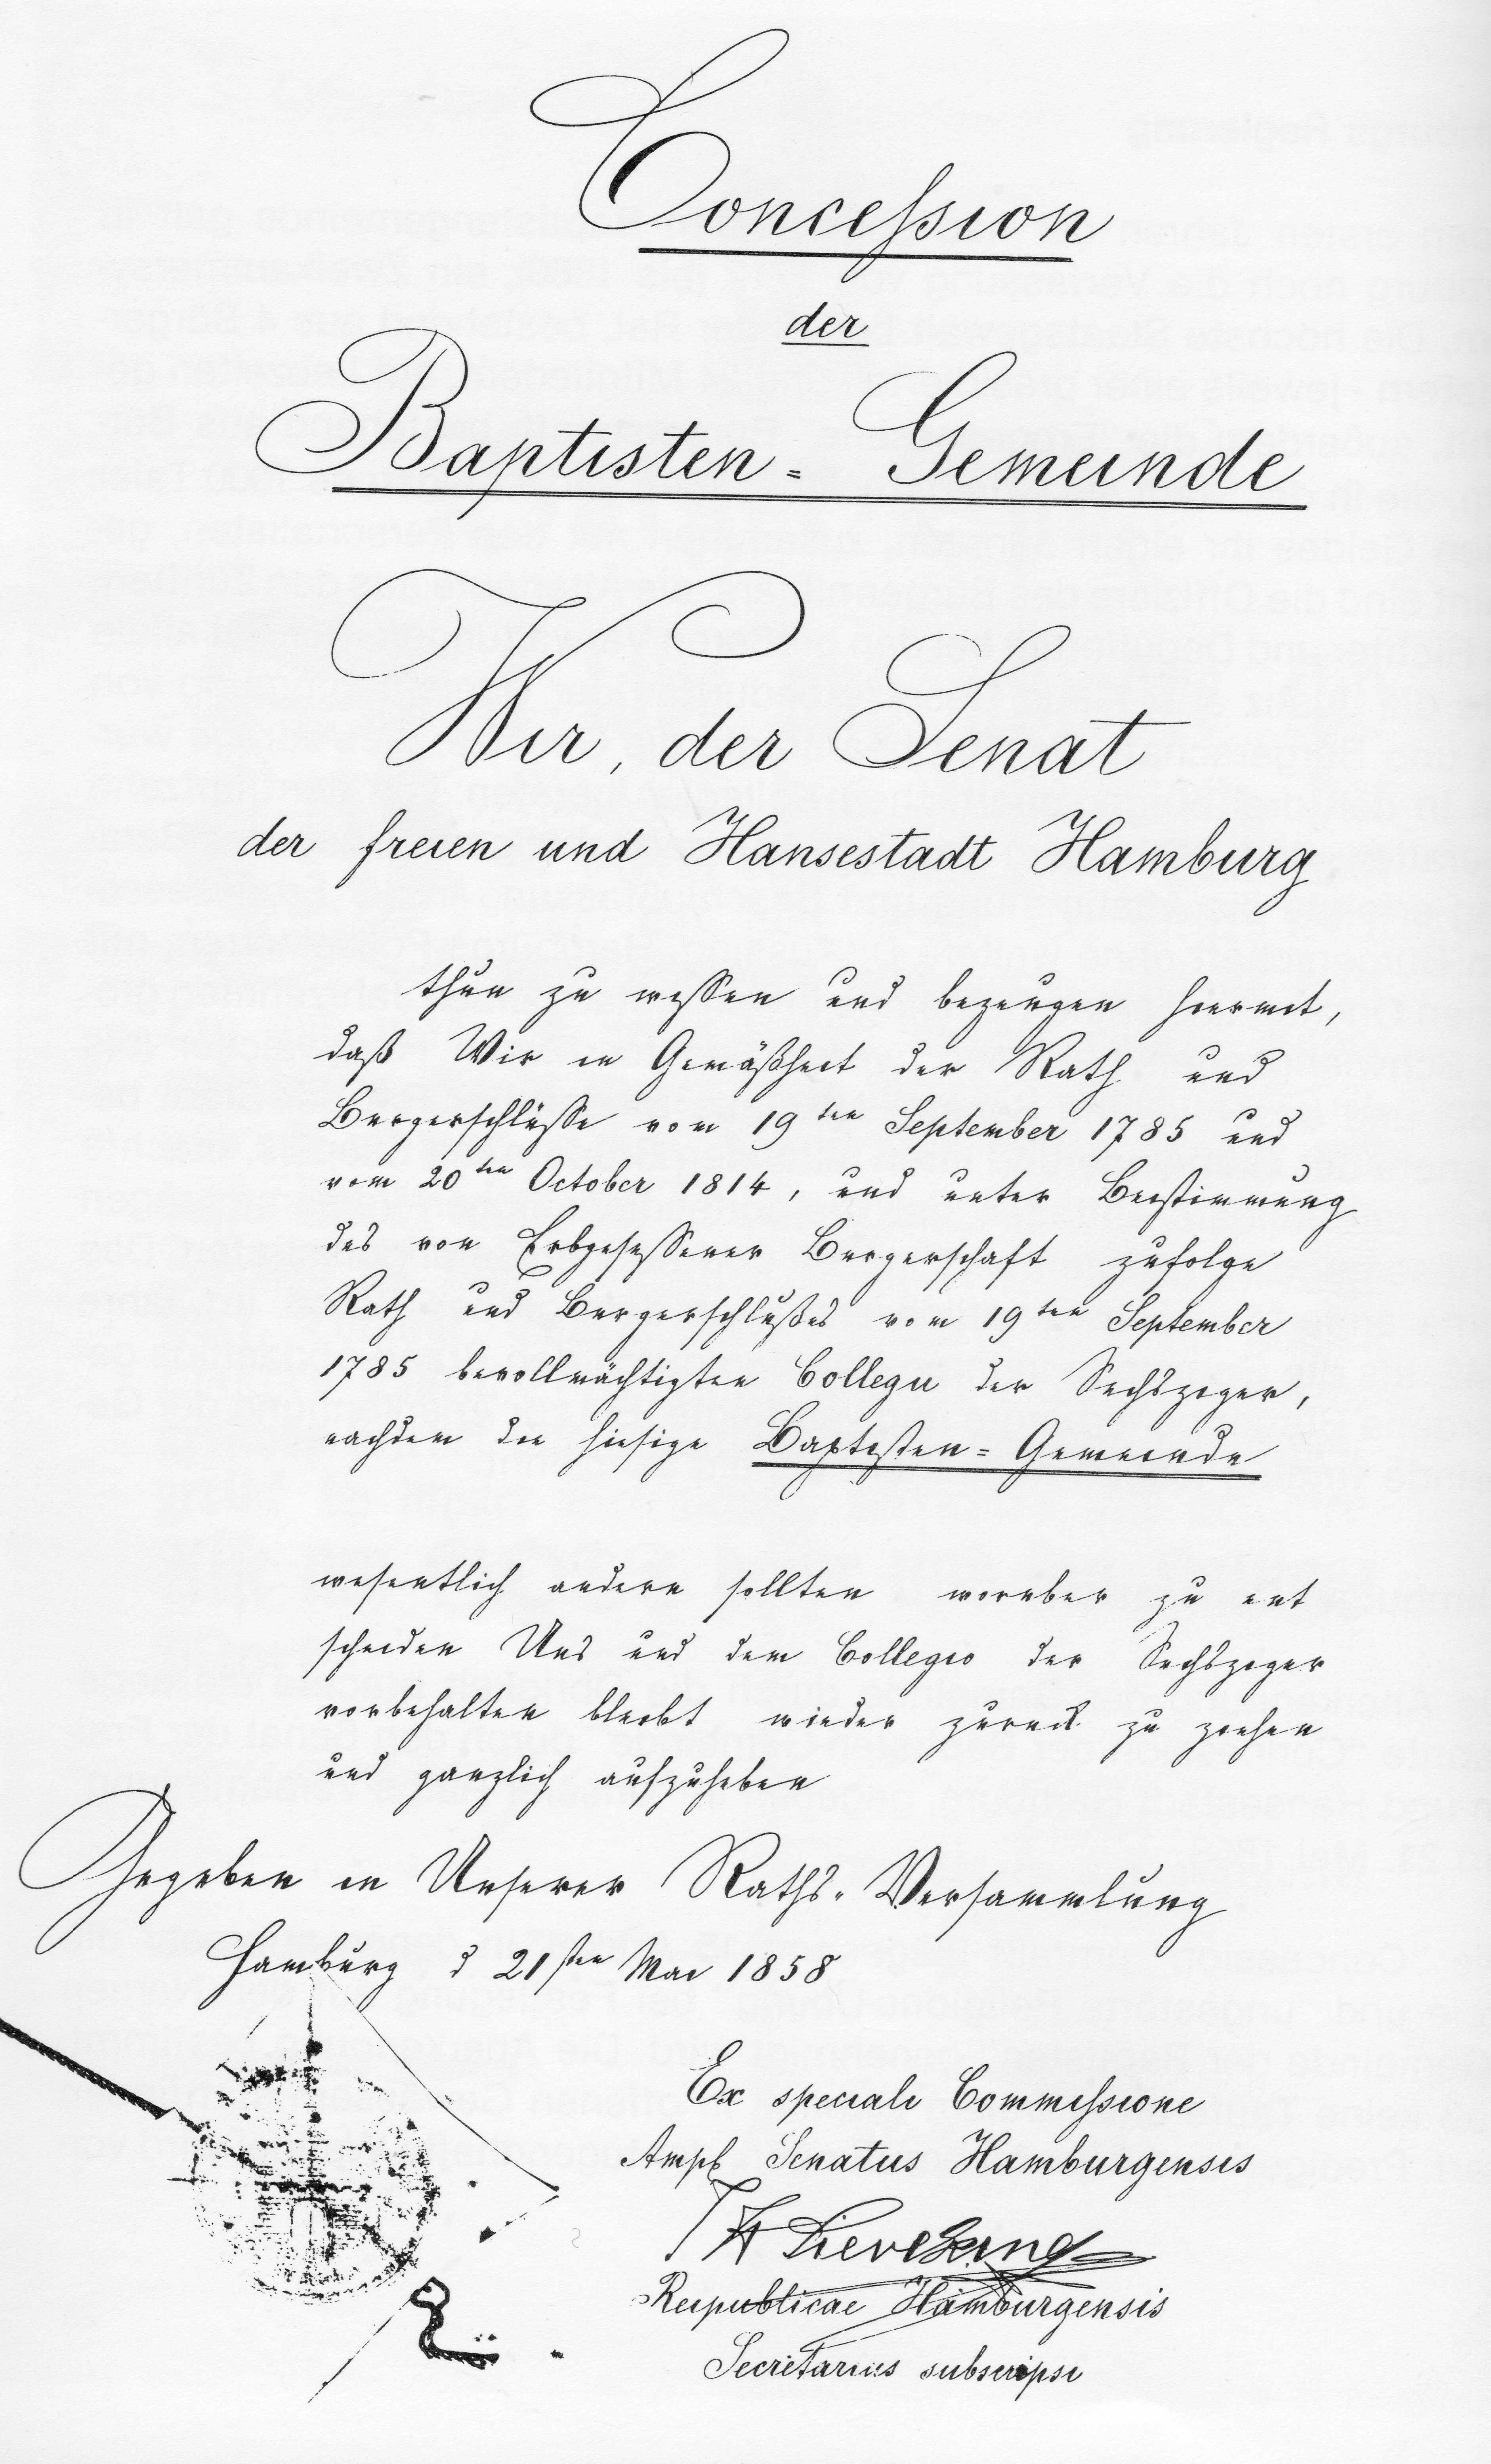 Concession
der
Baptisten = Gemeinde
Wir, der Senat
der freien und Hansestadt Hamburg
thun zu wissen und bezeugen hiermit,
daß Wir in Gemäßheit der Rath und
Bürgerschlüsse vom 19ten September 1785 und
vom 20ten October 1814, und unter Beistimmung
des von Erbgesessener Bürgerschaft zufolge
Rath und Bürgerschlußes vom 19ten September
1785 bevollmächtigten Collegii der Sechsziger,
nachdem die hiesige Baptisten = Gemeinde
wesentlich ändern sollten worüber zu ent
scheiden Uns und dem Collegio der Sechsziger
vorbehalten bleibt wieder zurück zu ziehen
und gänzlich aufzuheben
Gegeben in Unserer Raths-Versammlung
Hamburg d 21sten Mai 1858
Ex speciali Commissione
Ampl Senatus Hamburgensis
Sieveking
Reipublicae Hamburgensis
Secretarius subscripsi